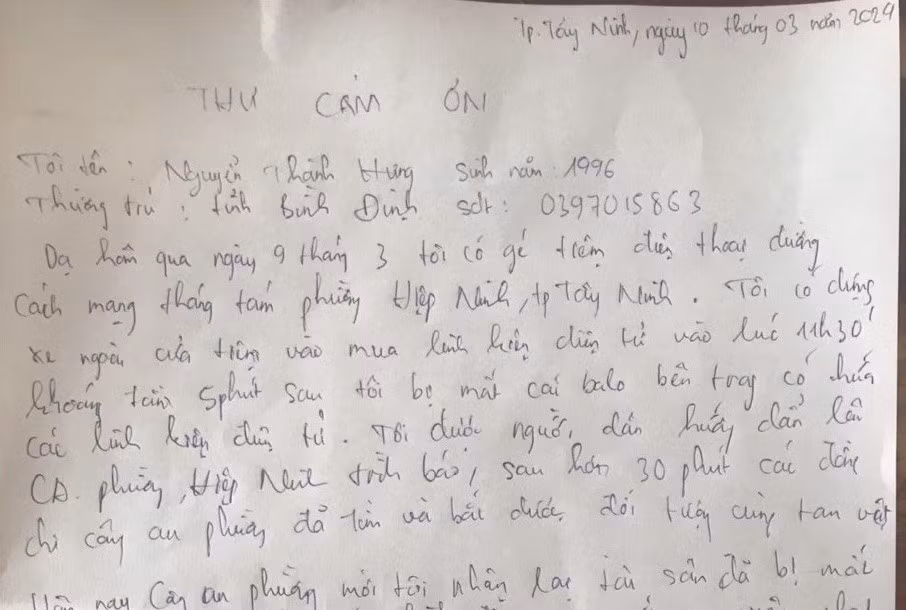 Tp. Tây Ninh, ngày 10 tháng 03 năm 2024
THƯ CẢM ƠN
Tôi tên : Nguyễn Thành Hưng sinh năm : 1996
Thường trú : tỉnh Bình Định sđt : 0397015863
Dạ hôm qua ngày 9 tháng 3 tôi có ghé tiệm điện thoại đường
Cách mạng tháng tám phường Hiệp Ninh, tp Tây Ninh. Tôi có dựng
xe ngoài cửa tiệm vào mua linh kiện điện tử vào lúc 11h30'
khoảng tầm 5 phút sau tôi bị mất cái balo bên trong có chứa
các linh kiện điện tử. Tôi được người dân hướng dẫn lên
CA. phường Hiệp Ninh trình báo, sau hơn 30 phút các đồng
chí công an phường đã tìm và bắt được đối tượng cùng tan vật
nay Công an phường mời tôi nhận lại tài sản đã bị mất